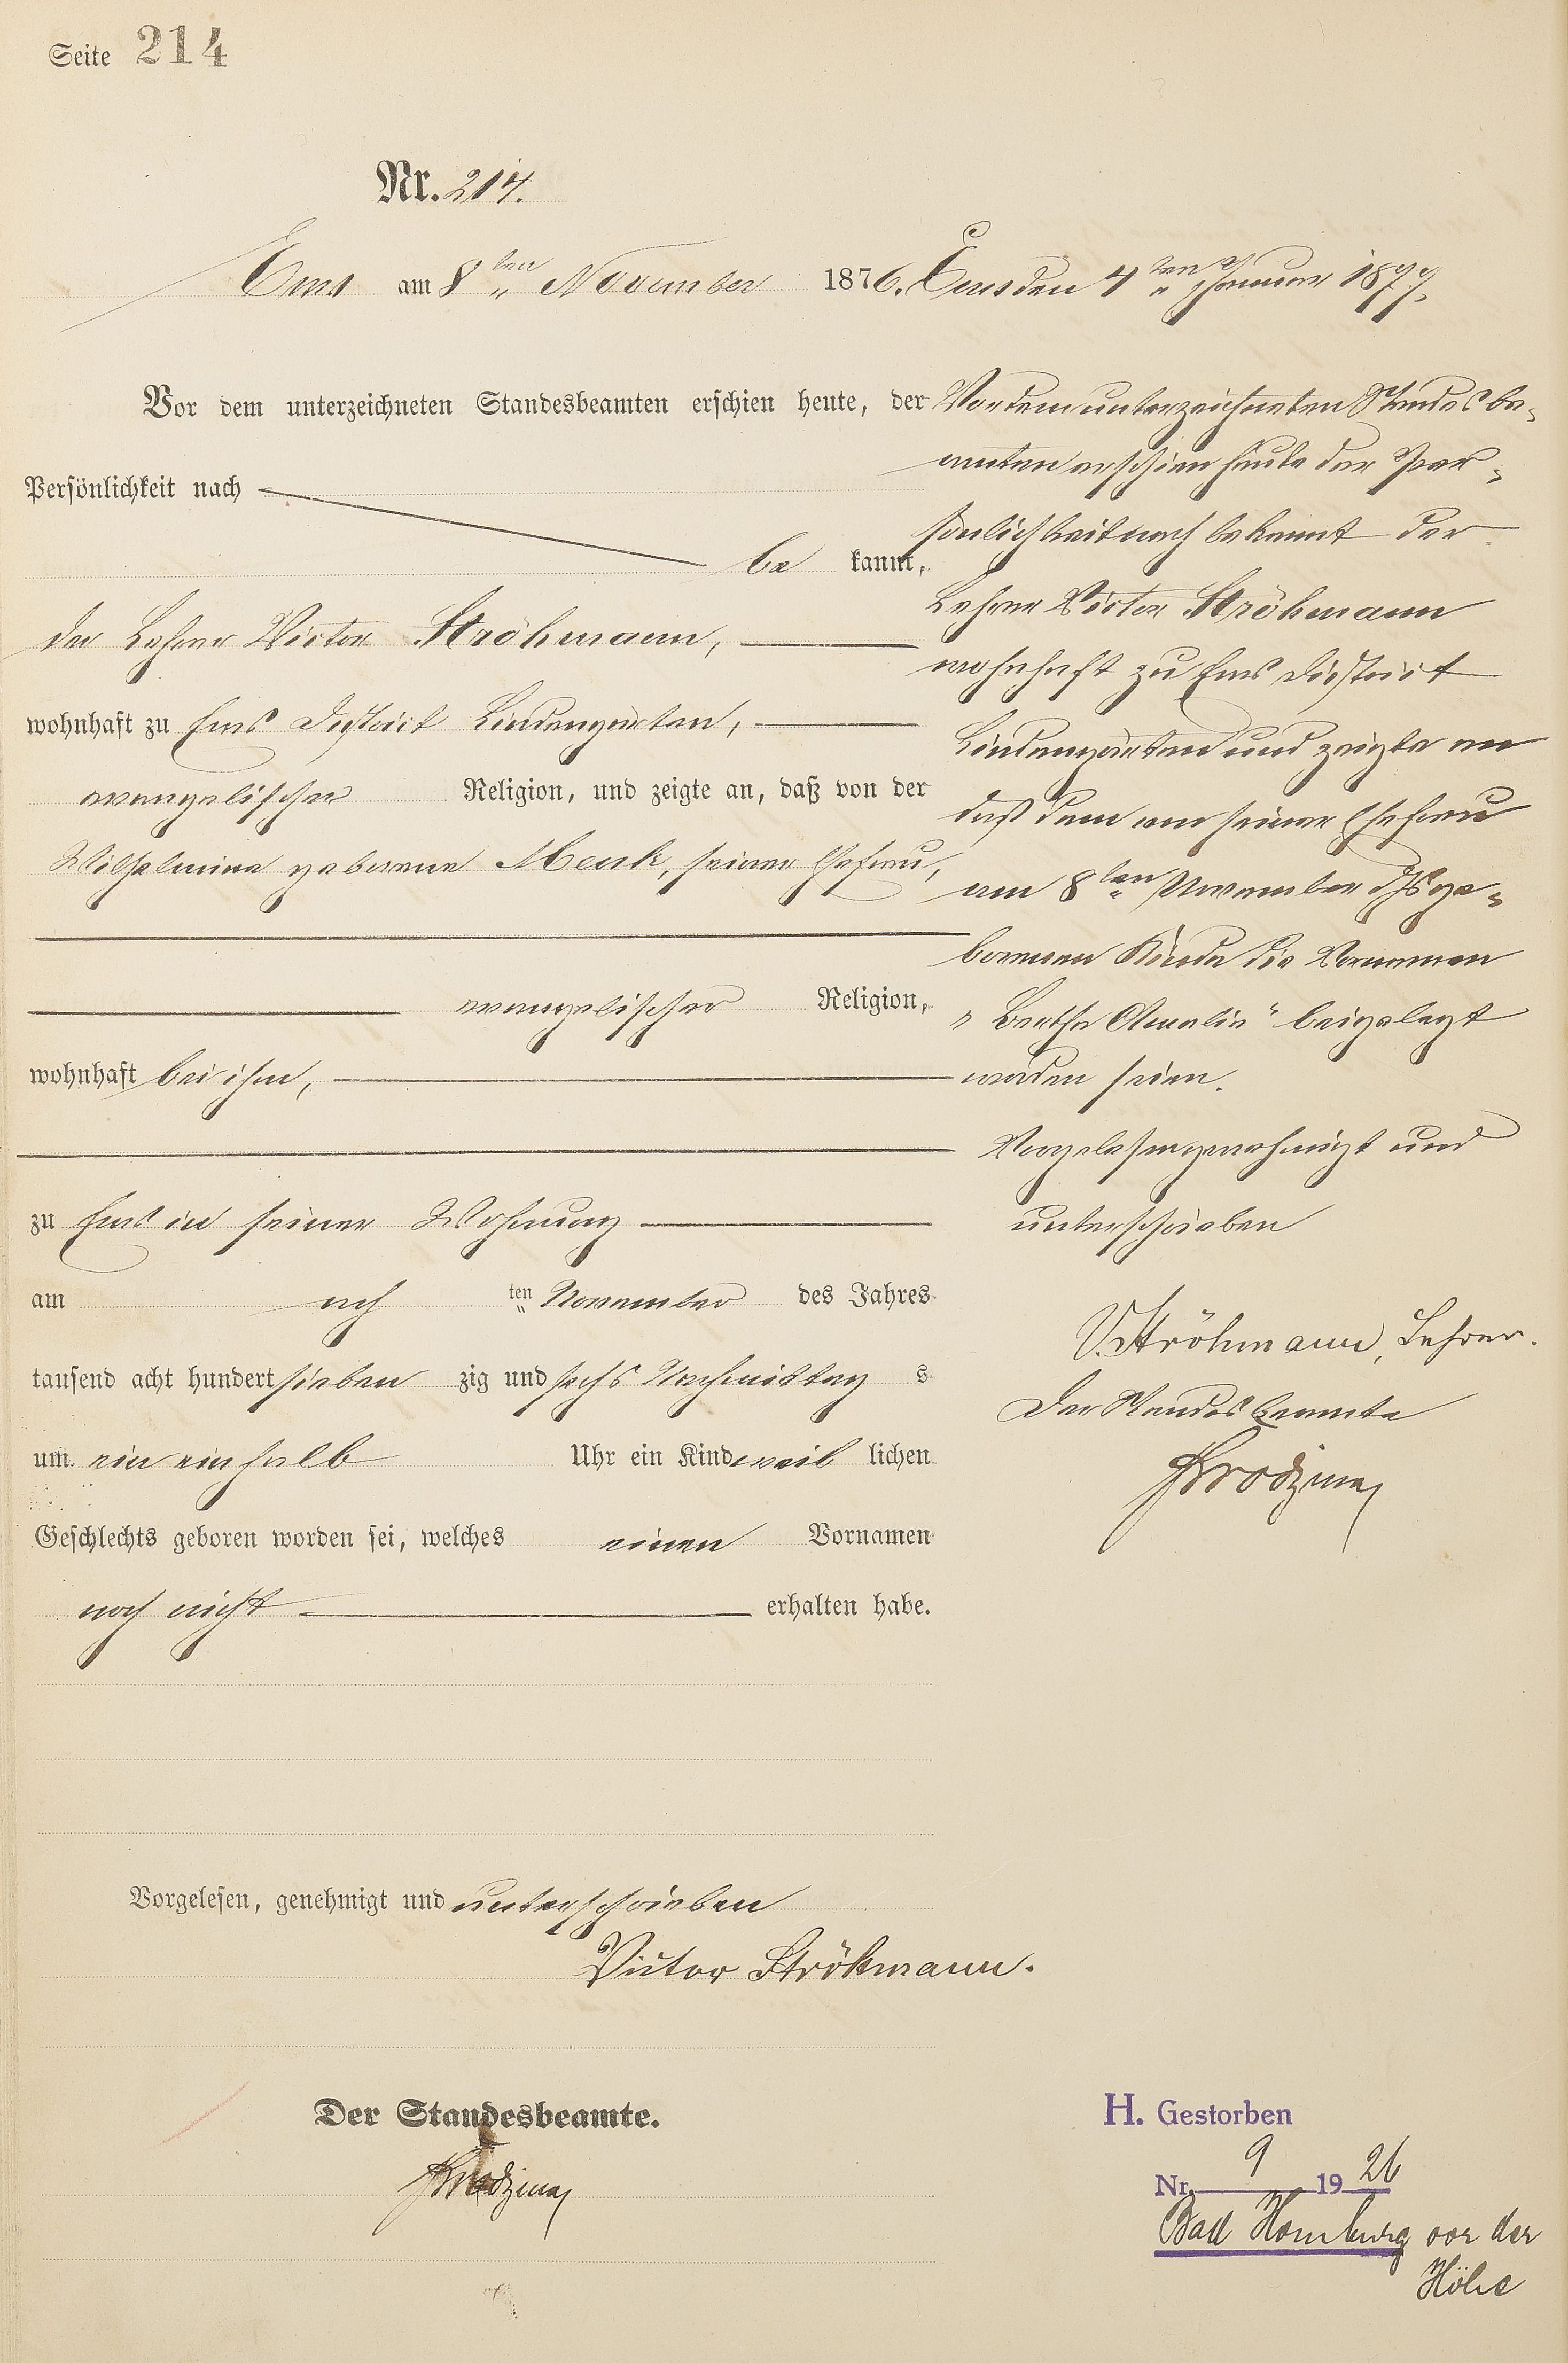 Seite 214
Nr. 214.
Ems am 8ten November 1876.
Vor dem unterzeichneten Standesbeamten erschien heute, der
Persönlichkeit nach
be kannt,
der Lehrer Victor Ströhmann,
wohnhaft zu Ems District Lindengärten,
evangelischer Religion, und zeigte an, daß von der
Wilhelmine geborene Menk, seiner Ehefrau,
evangelischer Religion,
wohnhaft bei ihm,
zu Ems in seiner Wohnung
am acht ten November des Jahres
tausend acht hundert sieben zig und sechs Nachmittag s
um ein einhalb Uhr ein Kind weib lichen
Geschlechts geboren worden sei, welches einen Vornamen
noch nicht erhalten habe.
Vorgelesen, genehmigt und unterschrieben
Victor Ströhmann.
Der Standesbeamte.
Ems den 4ten Januar 1877.
Vor dem unterzeichneten Standesbe-
amten erschien heute der Per-
sönlichkeit nach bekannt der
Lehrer Victor Ströhmann
wohnhaft zu Ems District
Lindengärten und zeigte an
daß dem von seiner Ehefrau
am 8ten November ge-
borenen Kinde die Vornamen
"Bertha Amalie" beigelegt
worden seien.
Vorgelesen genehmigt und
unterschrieben
V. Ströhmann, Lehrer.
Der Standesbeamte
H. Gestorben
Nr. 9 19 26
Bad Homburg vor der
Höhe